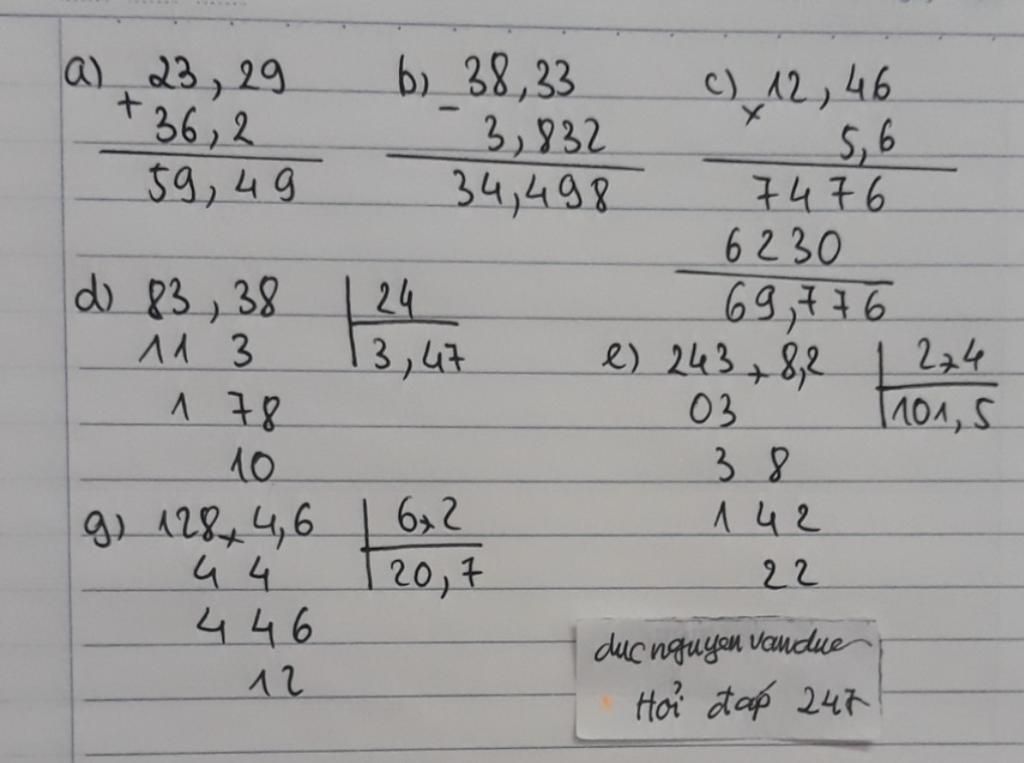 a) 23,29
+ 36,2
59,49
b) 38,33
- 3,832
34,498
c) 12,46
x 5,6
7476
6230
69,776
d) 83,38 | 24
11 3 | 3,47
1 78
10
e) 243,8,2 | 2,4
03 | 101,5
3 8
1 42
22
g) 128,4,6 | 6,2
4 4 | 20,7
4 4 6
12
ducnguyenvanduc
Hỏi đáp 247